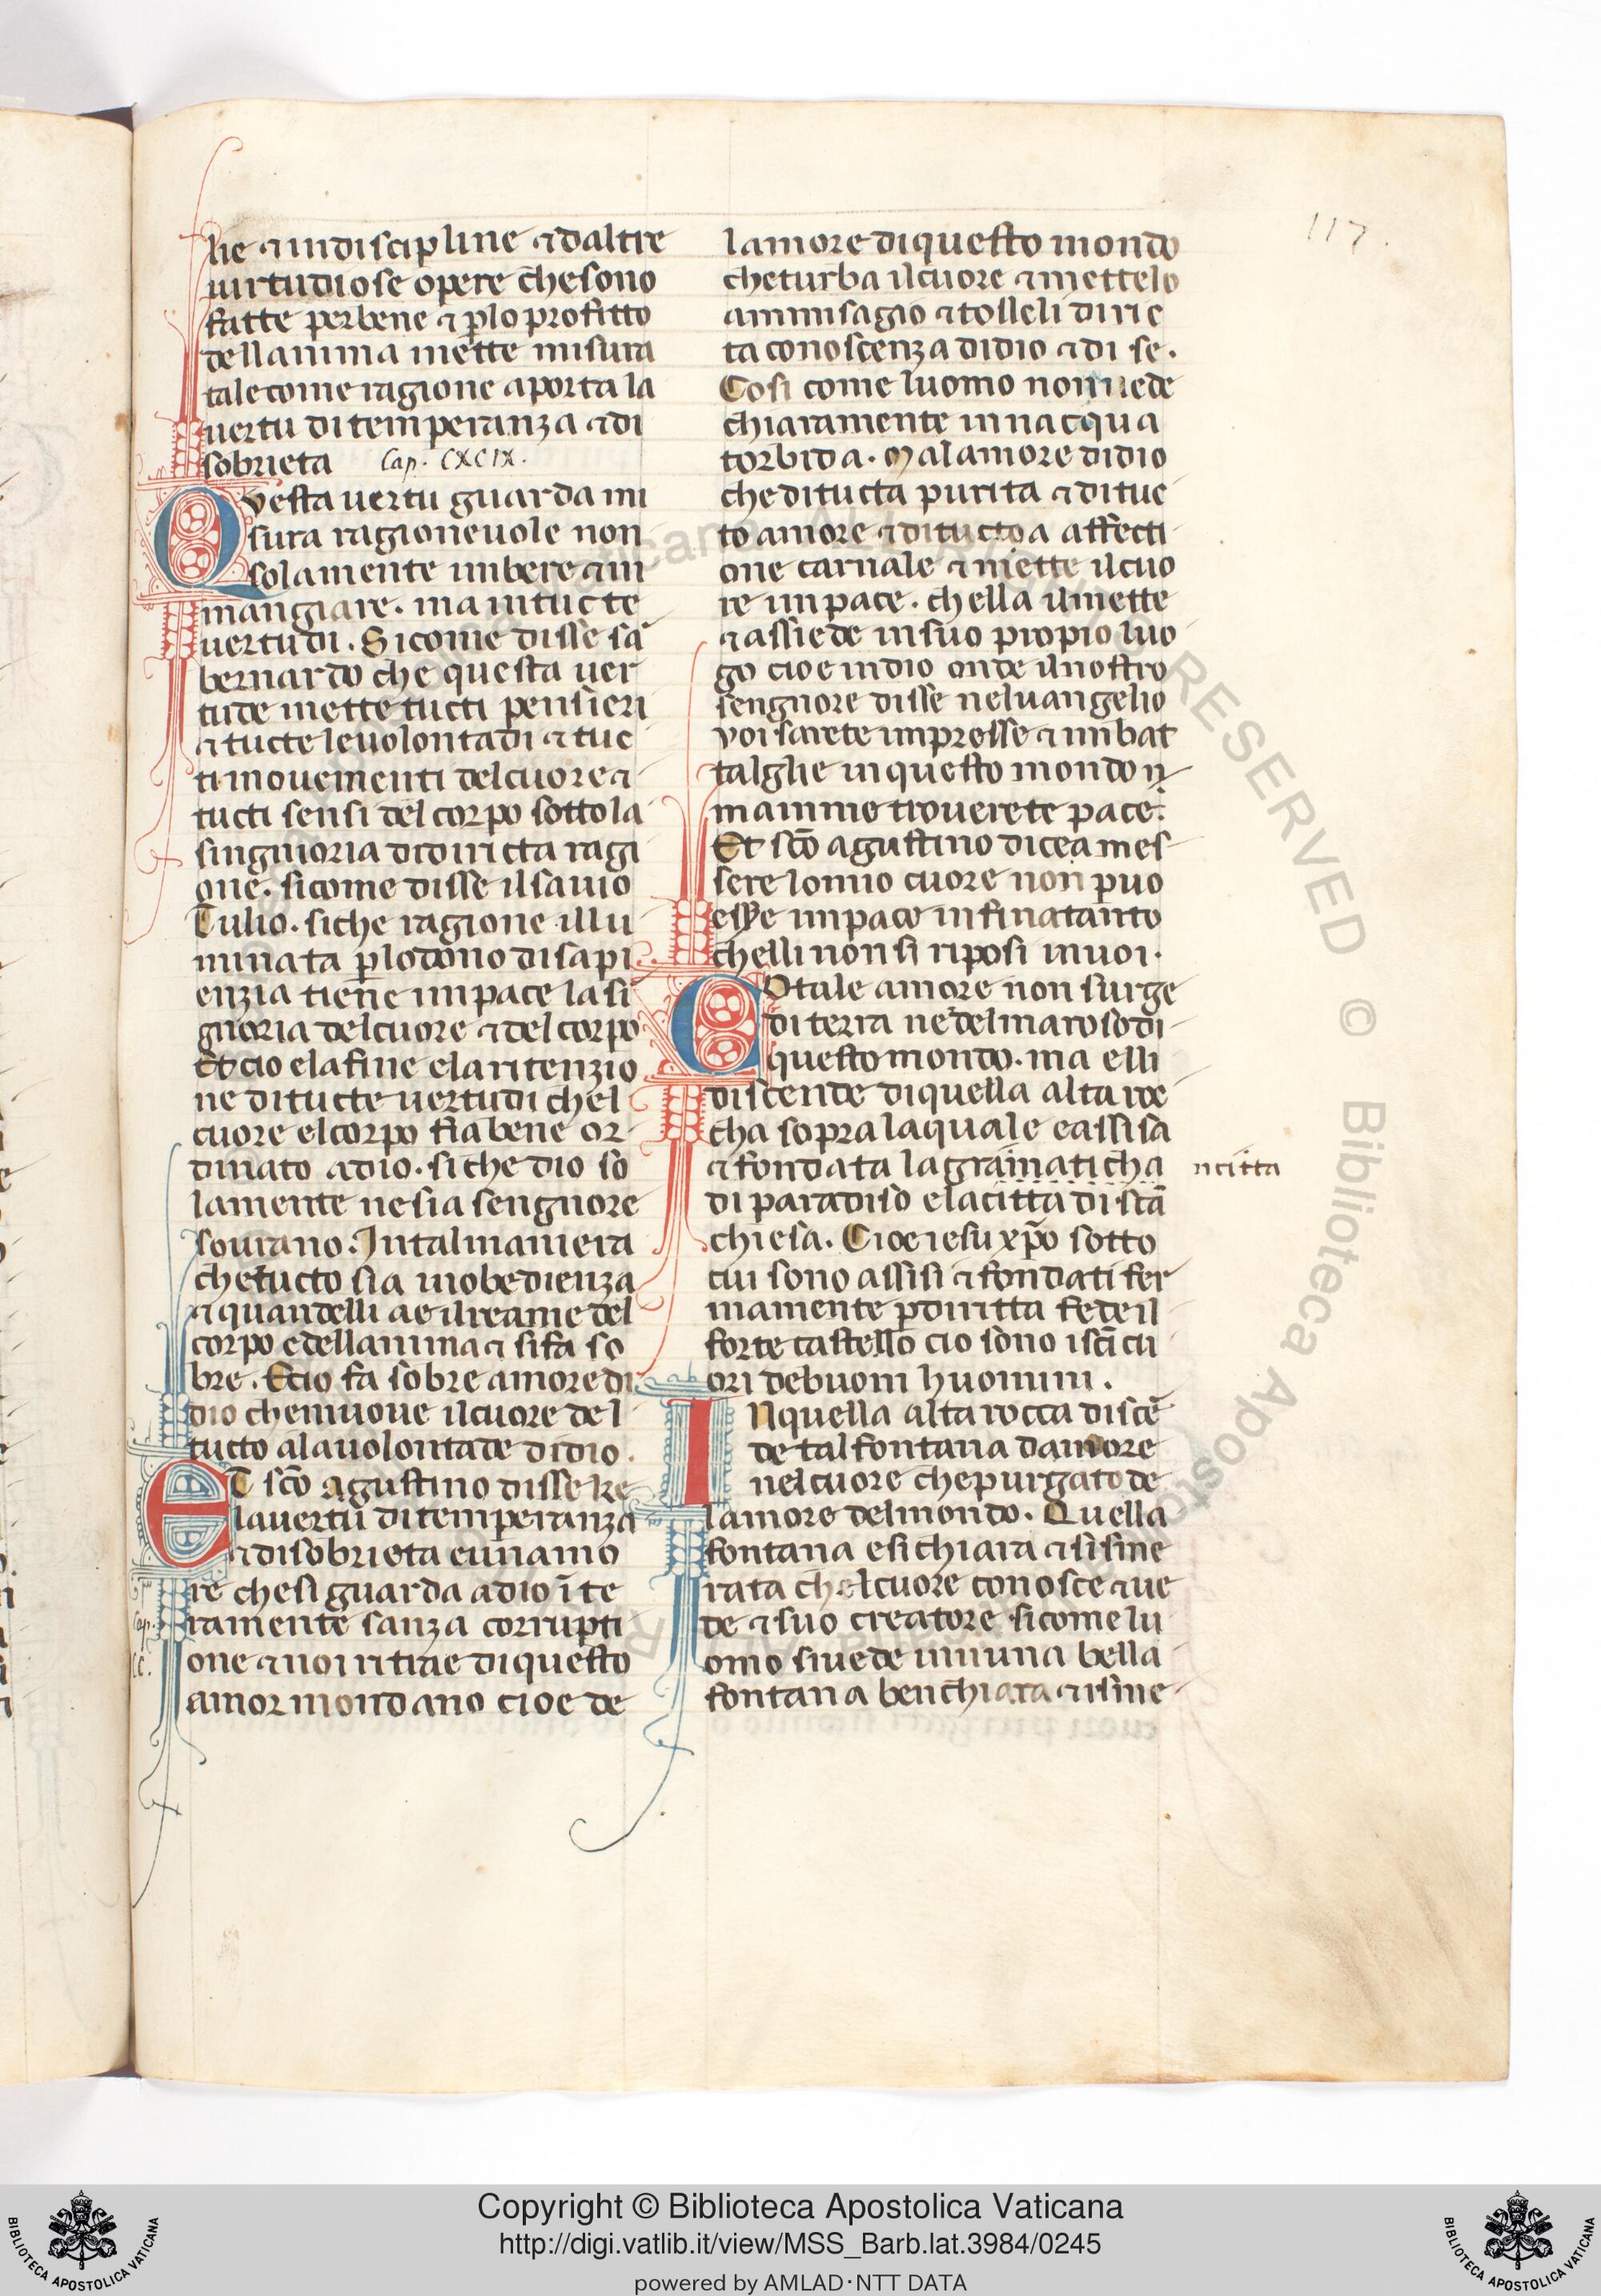 117.
lie ⁊ indiscipline ⁊ daltre
uirtudiose opere che sono
fatte per bene ⁊ ꝑlo profitto
dellanima mette misura
tale come ragione aporta la
uertu di temperanza ⁊ di
sobrieta Cap. CXCIX.
Questa uertu guarda mi
sura ragioneuole non
solamente inbere ⁊ in
mangiare. ma in tucte
uertudi. Sicome disse sā
bernardo che questa uer
tude mette tucti pensieri
⁊ tucte le uolontadi ⁊ tuc
ti mouementi del cuore ⁊
tucti sensi del corpo sotto la
singnioria di diricta ragi
one. sicome disse il sauio
Tulio. siche ragione illu
minata ꝑlo dono di sapi
enzia tiene in pace la si
gnoria del cuore ⁊ del corpo
Et cio e la fine e la ritenzio
ne di tucte uertudi chel
cuore el corpo fia bene or
dinato a dio. si che dio so
lamente ne sia sengnore
sourano. In tal maniera
che tucto sia in obedienza
⁊ quandelli ae il reame del
corpo e dellanima ⁊ si fa so
bre. E cio fa sobre amore di
dio che mmuoue il cuore del
tucto ala uolontade didio.
ET sc̄o agustino disse ke
la uertu di temperanza
⁊ di sobrieta e un amo
re che si guarda a dio īte
ramente sanza corrupti
Cap.
CC.
one ⁊ noi ritrae di questo
amor mondano cioe de
lamore di questo mondo
che turba il cuore ⁊ mettelo
ammisagio ⁊ tolleli diric
ta conoscenza di dio ⁊ di se.
Cosi come luomo non uede
chiaramente innacqua
torbida. Ma lamore di dio
che di tucta purita ⁊ di tuc
to amore ⁊ di tucto a affecti
one carnale ⁊ mette il cuo
re in pace. chella il mette
⁊ assiede in suo propio luo
go cioe in dio onde il nostro
sengnore disse nel uangelio
voi sarete impresse ⁊ imbat
talglie in questo mondo ⁊
mamme trouerete pace.
Et sc̄o agustino dicea mes
sere lo mio cuore non puo
essere in pace in fina tanto
chelli non si riposi in uoi.
COtale amore non surge
di terra ne del maroso di
questo mondo. ma elli
discende di quella alta roc
cha sopra la quale e assisa
⁊ fondata la gramaticha
ncitta
di paradiso e la citta di sc̄a
chiesa. Cioe iesu xp̄o sotto
cui sono assisi ⁊ fondati fer
mamente ꝑ diritta fede il
forte castello cio sono i sc̄i cu
ori de buoni huomini.
INquella alta rocca discē
de tal fontana damore
nel cuore che purgato de
lamore del mondo. Quella
fontana e si chiara ⁊ si sine
rata chel cuore conosce ⁊ ue
de ⁊ suo creatore sicome lu
omo si uede in una bella
fontana ben chiara ⁊ isine
Copyright © Biblioteca Apostolica Vaticana
http://digi.vatlib.it/view/MSS_Barb.lat.3984/0245
powered by AMLAD·NTT DATA
BIBLIOTECA APOSTOLICA VATICANA
BIBLIOTECA APOSTOLICA VATICANA